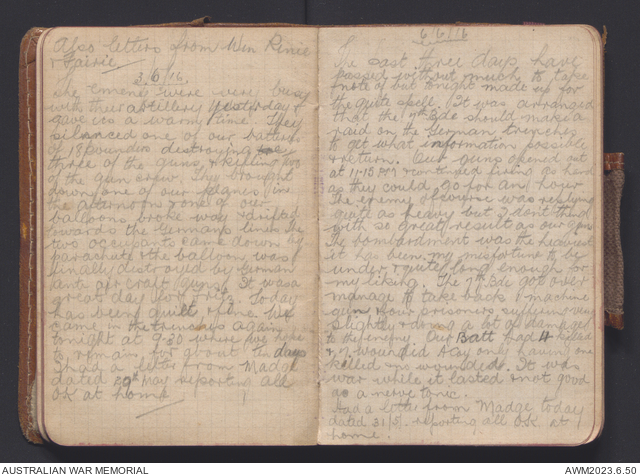 Also letters from Wen Renie
& Fairie.
3/6/16.
The enemie were very busy
with their artillery yesterday &
gave us a warm time. They
silenced one of our batterys
of 18 pounders destroying
three of the guns & killing two
of the gun crew. They brought
down one of our planes in
the afternoon & one of our
balloons broke way & drifted
towards the Germans lines the
two occupants came down by
parashute & the balloon was
finally destroyed by German
anti air craft guns. It was a
great day for Fritz. Today
has been quiet & fine. We
came in the trenches again
tonight at 9-30 where we hope
to remain for about ten days
I had a letter from Madge
dated 29th May reporting all
OK at home
6/6/16
The last three days have
passed without much to take
note of but tonight made up for
the quite spell. It was arranged
that the 7th Bde should make a
raid on the German trenches
to get what information possible
& return. Our guns opened out
at 11-15 PM & continued firing as hard
as they could go for an hour
the enemy of course was replying
quite as heavy but I dont think
with so great result as our guns
The bombardment was the heaviest
it has been my misfortune to be
under & quite long enough for
my liking. The 7th Bde got over
manage to take back 1 machine
gun & four prisoners suffering very
slightly & doing a lot of damage
to the enemy. Our Batt had 4 killed
& 7 wounded A Coy only having one
killed & no wounded. It was
war while it lasted & not good
as a nerve tonic.
Had a letter from Madge today
dated 31/5/ reporting all OK at
home.
AUSTRALIAN WAR MEMORIAL
AWM2023.6.50